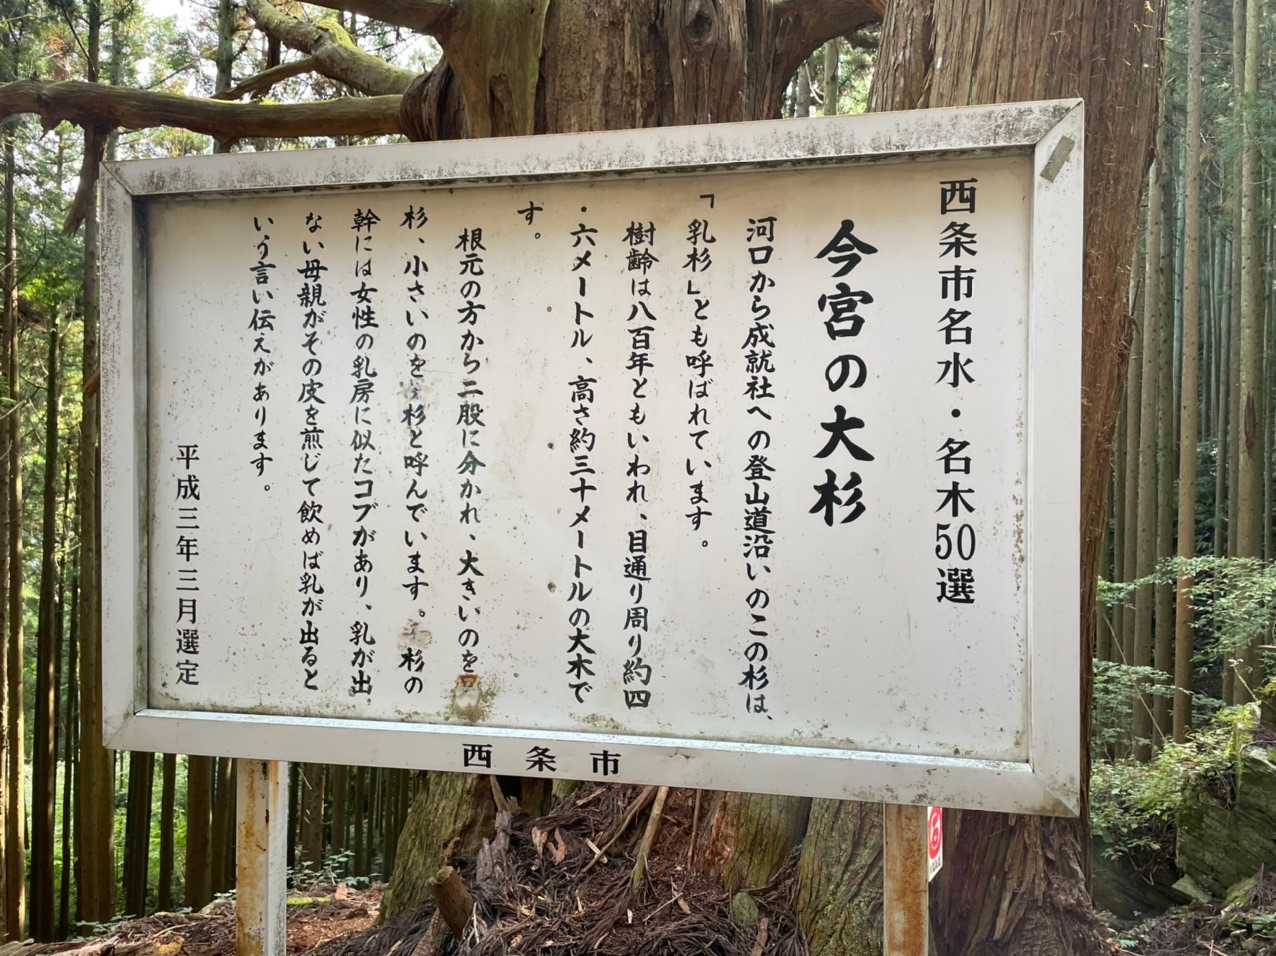 西条市名水・名木50選
今宮の大杉
河口から成就社への登山道沿いのこの杉は、
「乳杉」とも呼ばれています。
樹齢は八百年ともいわれ、目通り周り約四
・六メートル、高さ約三十メートルの大木で
す。
根元の方から二股に分かれ、大きいのを
杉、小さいのを 杉と呼んでいます。杉の
幹には女性の乳房に似たコブがあり、乳が出
ない母親がその皮を煎じて飲めば乳が出ると
いう言い伝えがあります。
平成三年三月選定
西条市